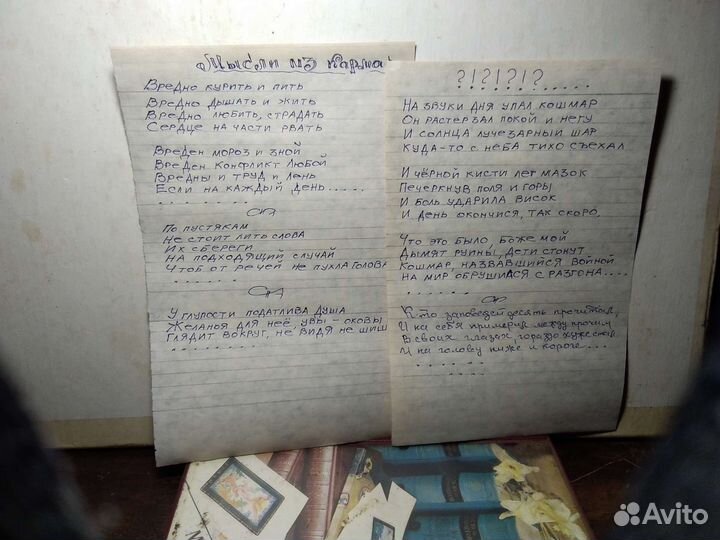 Мысли из Карма
Вредно курить и пить
Вредно дышать и жить
Вредно любить, страдать
Сердце на части рвать
Вреден мороз и зной
Вреден конфликт любой
Вредны и труд и лень
Если на каждый день......
По пустякам
Не стоит лить слова
Их сбереги
На подходящий случай
Чтоб от речей не пухла голова
.......
У глупости податлива душа
Желанья для неё, увы - оковы
Глядит вокруг, не видя не шиш
.......
?!?!?!?
На звуки дня упал кошмар
Он растерзал покой и негу
И солнца лучезарный шар
Куда-то с неба тихо съехал
И чёрной кисти лёг мазок
Печеркнув поля и горы
И боль ударила висок
И день окончися, так скоро.
.......
Что это было, Боже мой
Дымят руины, дети стонут
Кошмар, назвавшийся войной
На мир обрушился с разгона....
......
Кто заповедей десять прочитал,
И на себя примерил между прочим
В своих глазах, гораздо хуже стал
И на голову ниже и короче...
......
....
Avito